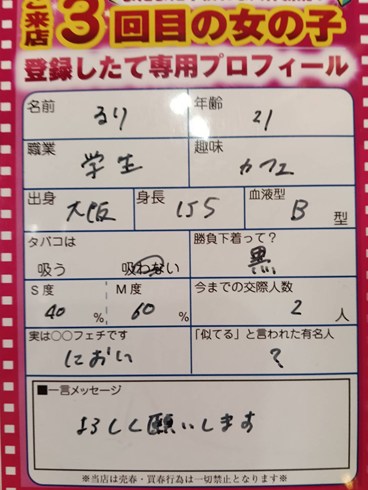 ご来店
3回目の女の子
登録したて専用プロフィール
名前 るり 年齢 21
職業 学生 趣味 カフェ
出身 大阪 身長 155 血液型 B 型
タバコは 勝負下着って?
吸う 吸わない 黒
S度 M度 今までの交際人数
40 % 60 % 2 人
実は〇〇フェチです 「似てる」と言われた有名人
におい ?
■一言メッセージ
よろしく願いします
※当店は売春・買春行為は一切禁止となります※